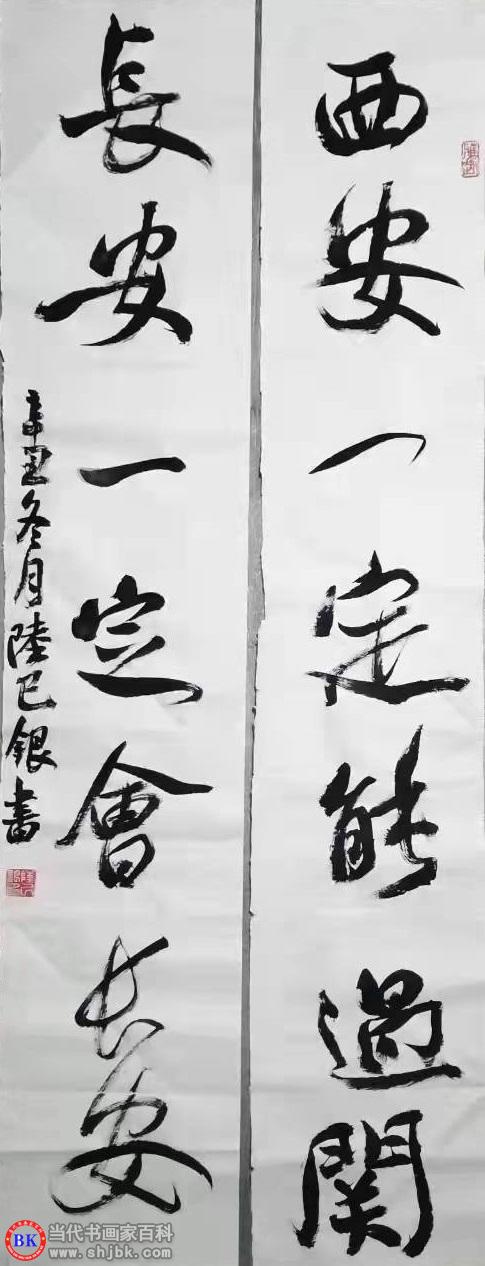 西安一定能過関
長安一定會长安
辛丑冬月陸已銀書
BK
当代书画家百科
www.shjbk.com